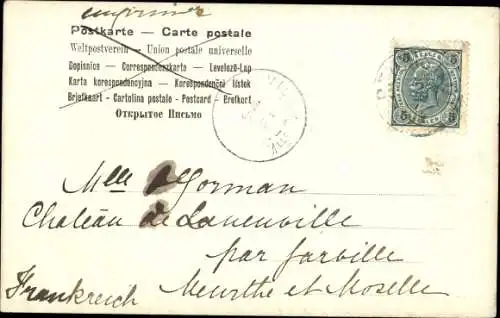 imprimée
Postkarte — Carte postale
Weltpostverein — Union postale universelle
Dopisnice — Correspondenzkarte — Levelező-Lap
Karta korespondencyjna — Korespondenční lístek
Briefkaart — Cartolina postale — Postcard — Brefkort
Открытое Письмо
5 5
5 5
Mlle O'Gorman
Château de Laneuville
par farville
Frankreich Meurthe et Moselle